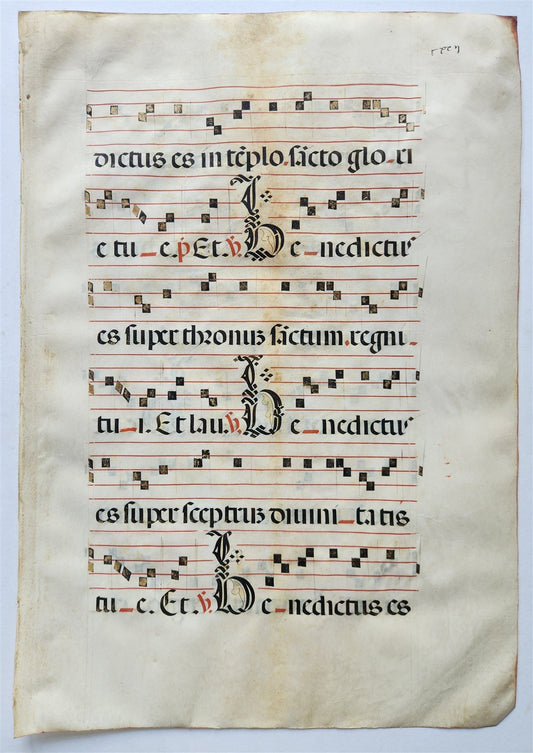 dictus es in tēplo . sācto glo - ri
e tu _ e . p̄ Et . ℣. Be _ nedictus
es super thronuʒ sāctum . regni -
tu _ i . Et lau . ℣. Be _ nedictus
es super sceptruʒ diuini _ ta tis
tu _ e . Et . ℣. Be _ nedictus es